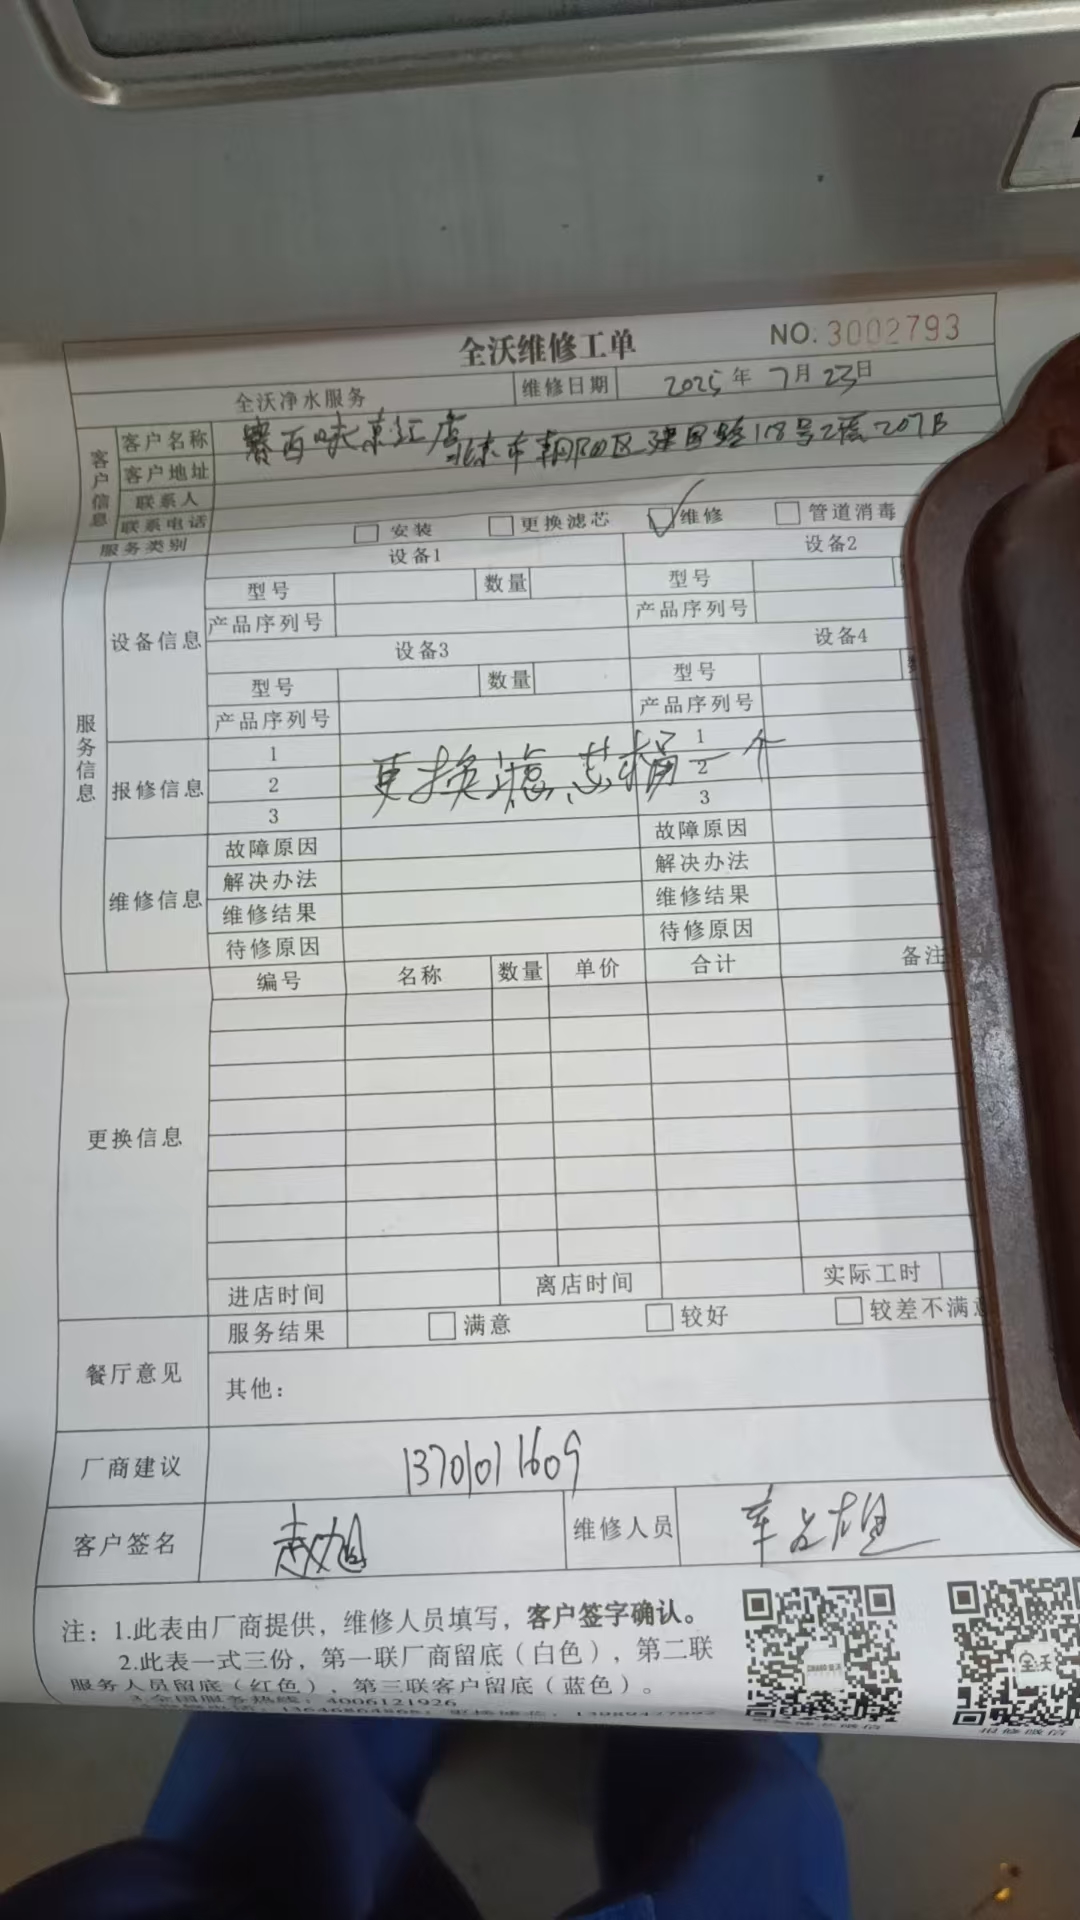 全沃维修工单 NO.3002793
全沃净水服务 维修日期 2025年7月23日
客户信息
客户名称 赛百味京汇店
客户地址 北京市朝阳区建国路118号2层207B
联系人
联系电话
服务类别 安装 更换滤芯 维修 管道消毒
服务信息
设备信息
设备1 设备2
型号 数量 型号
产品序列号 产品序列号
设备3 设备4
型号 数量 型号
产品序列号 产品序列号
报修信息
1 1
2 更换滤芯桶一个 2
3 3
维修信息
故障原因 故障原因
解决办法 解决办法
维修结果 维修结果
待修原因 待修原因
更换信息
编号 名称 数量 单价 合计 备注
进店时间 离店时间 实际工时
餐厅意见
服务结果 满意 较好 较差不满意
其他：
厂商建议 13701011609
客户签名 赵旭 维修人员
注：1.此表由厂商提供，维修人员填写，客户签字确认。
2.此表一式三份，第一联厂商留底（白色），第二联
服务人员留底（红色），第三联客户留底（蓝色）。
3.全国服务热线：4006121926
全沃
报修微信